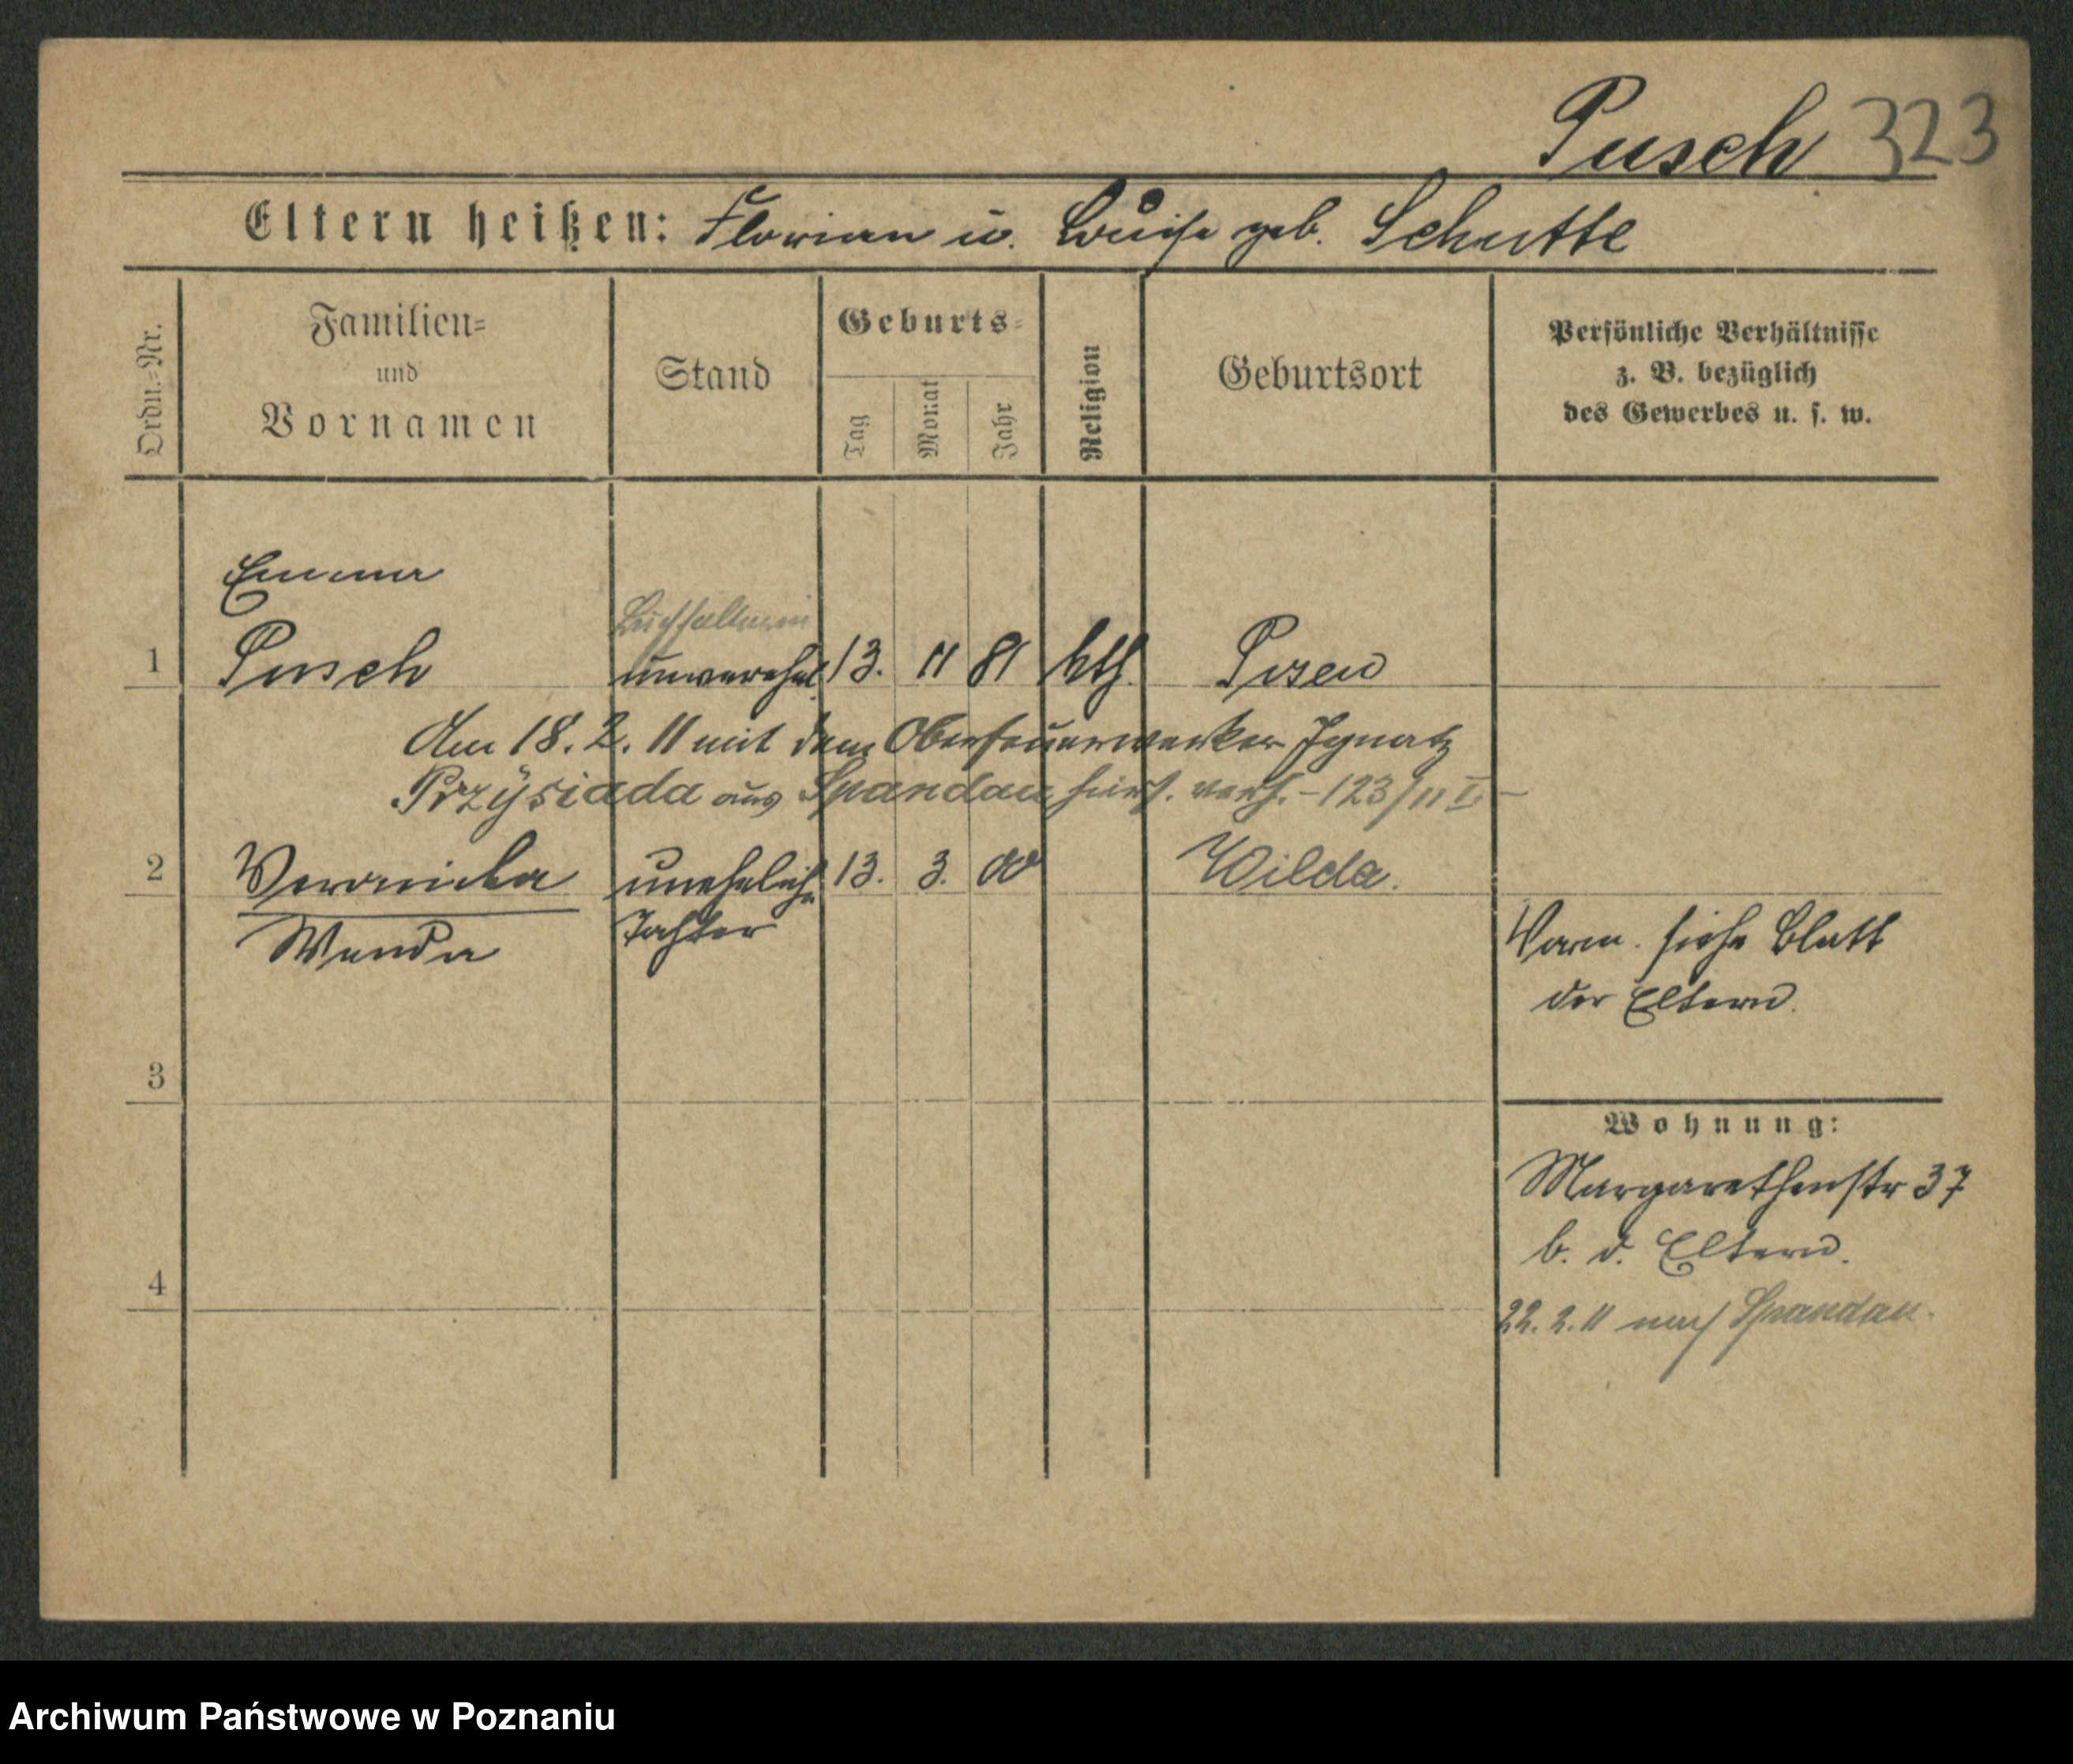 Pusch 323
Eltern heißen: Florian u. Louise geb. Schutte
Ordn.=Nr.
Familien=
und
Vornamen
Stand
Geburts=
Tag
Monat
Jahr
Religion
Geburtsort
Persönliche Verhältnisse
z. B. bezüglich
des Gewerbes u. s. w.
Emma
Buchhalterin
1 Pusch unverehel. 13. 11 81 kth. Posen
Am 18. 2. 11 mit dem Oberfeuerwerker Ignatz
Przysiada aus Spandau hiers. verh. – 123/11 I –
2 Veronicka unehelich 13. 3. 00 Wilda.
Wanda Tochter
Verm. siehe Blatt
der Eltern.
3
Wohnung:
Margarethenstr 37
b. d. Eltern.
4
22. 2. 11 nach Spandau.
Archiwum Państwowe w Poznaniu